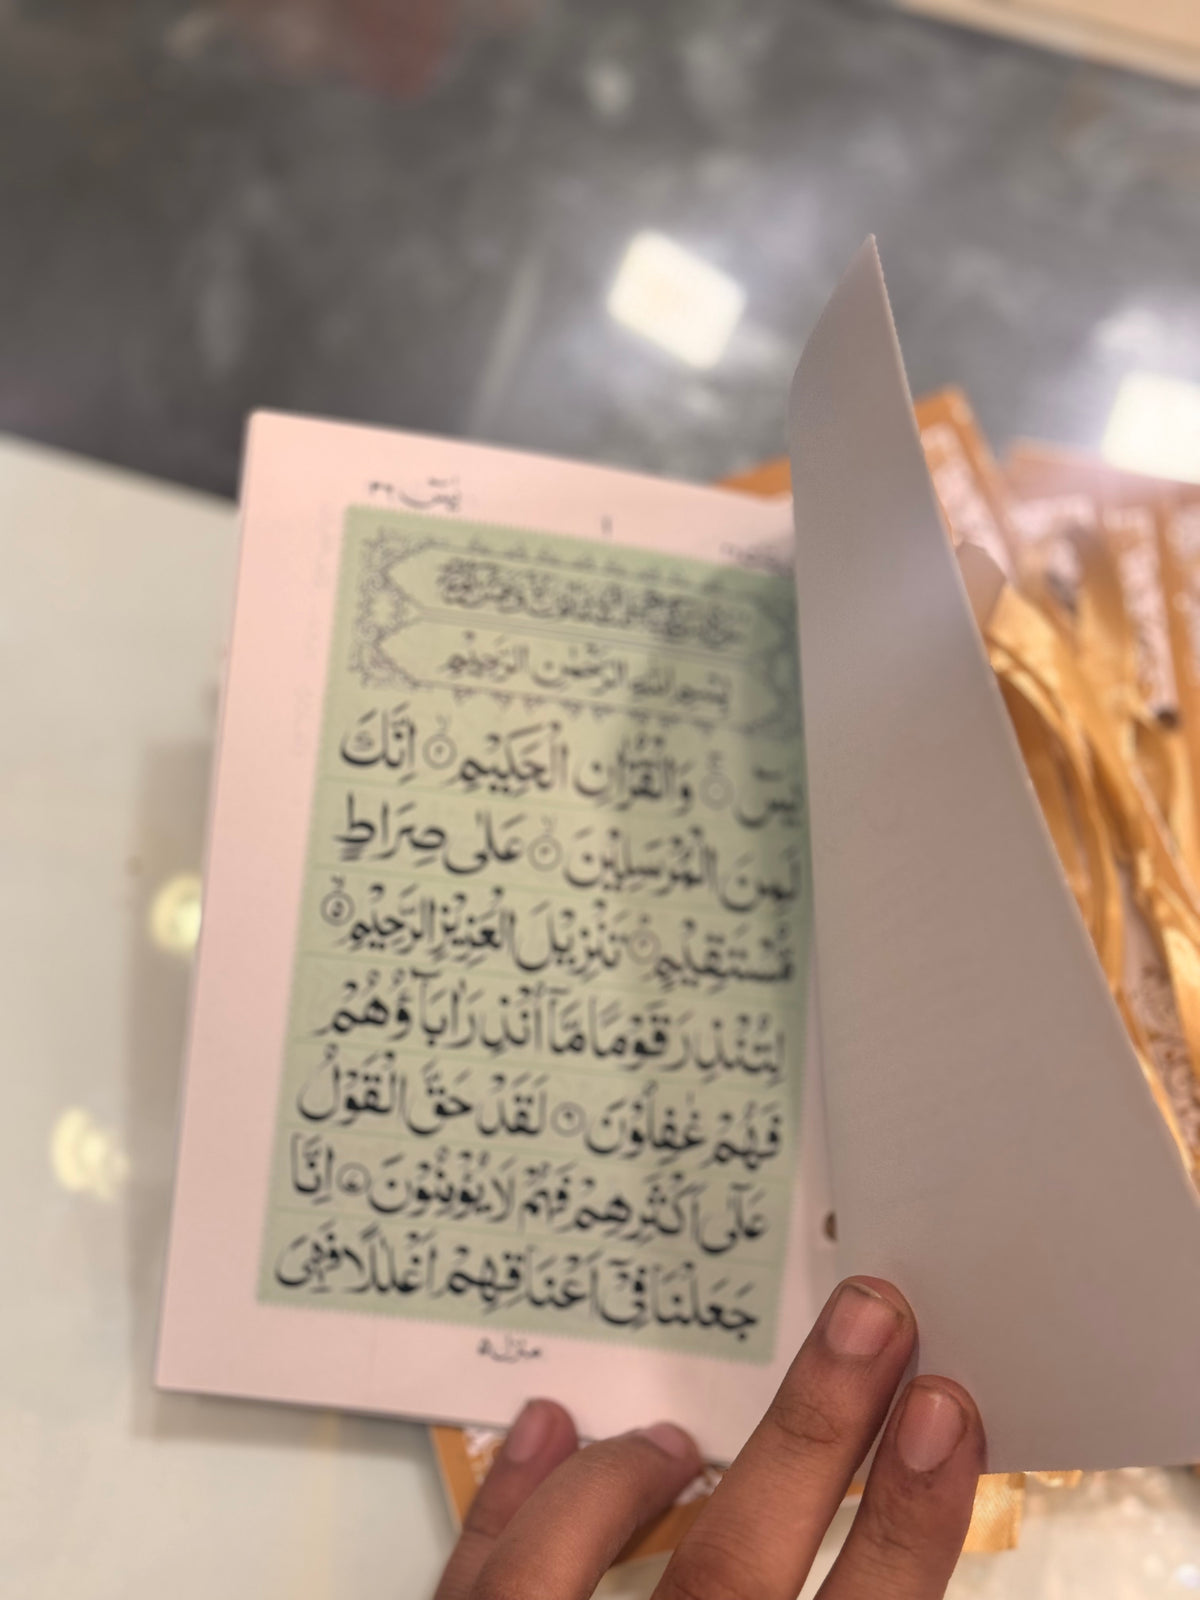 يٰسٓ ٣٦
١
بِسْمِ اللهِ الرَّحْمٰنِ الرَّحِيْمِ
يٰسٓ ۚ﴿١﴾ وَالْقُرْاٰنِ الْحَكِيْمِ ۙ﴿٢﴾ اِنَّكَ
لَمِنَ الْمُرْسَلِيْنَ ۙ﴿٣﴾ عَلٰى صِرَاطٍ
مُّسْتَقِيْمٍ ؕ﴿٤﴾ تَنْزِيْلَ الْعَزِيْزِ الرَّحِيْمِ ۙ﴿٥﴾
لِتُنْذِرَ قَوْمًا مَّاۤ اُنْذِرَ اٰبَآؤُهُمْ
فَهُمْ غٰفِلُوْنَ ﴿٦﴾ لَقَدْ حَقَّ الْقَوْلُ
عَلٰۤى اَكْثَرِهِمْ فَهُمْ لَا يُؤْمِنُوْنَ ﴿٧﴾ اِنَّا
جَعَلْنَا فِيْۤ اَعْنَاقِهِمْ اَغْلٰلًا فَهِيَ
منزل ٥